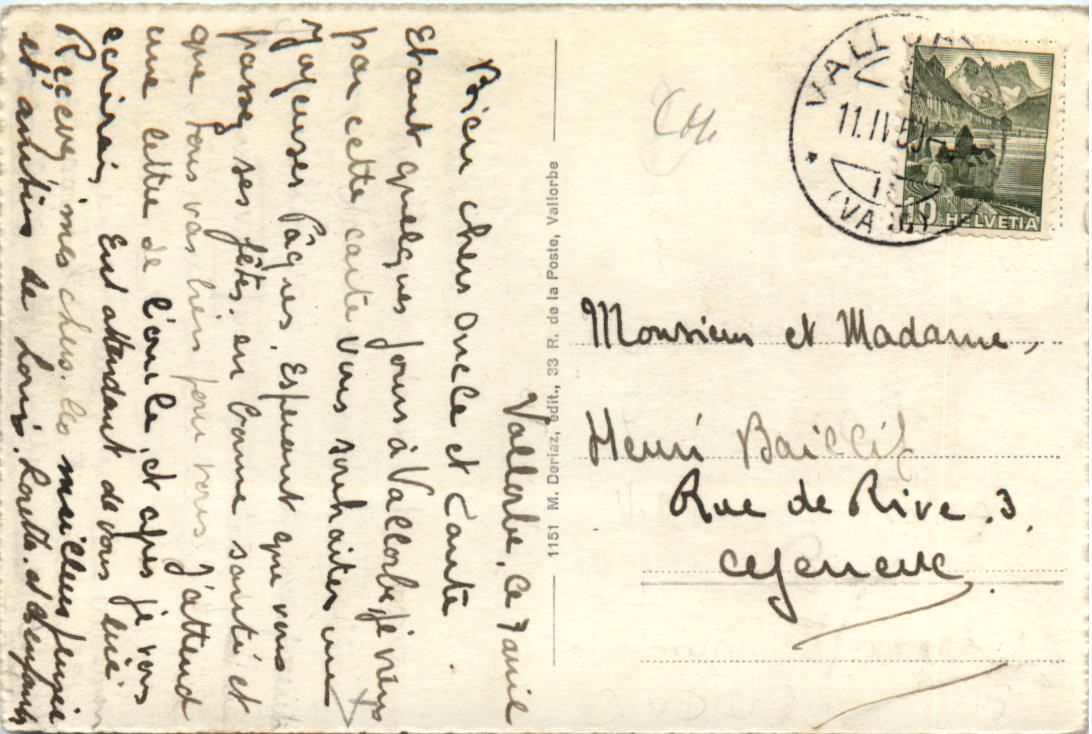 Vallorbe, ce
Bien chers Oncle et Tante
Etant quelques jours à Vallorbe, je viens
par cette carte vous souhaiter une
Joyeuses Pâques, Esperent que vous
passez ses fêtes en bonne santé et
que tous vas bien pour vous, J'attend
une lettre de l'oncle, et apres je vous
ecrirai, End attendant de vous
Recevez mes chers, les meilleurs pensée
et amitiés de Loris. et d'enfants
1151 M. Doriaz, édit., 33 R. de la Poste, Vallorbe
VALLORBE
11.IV.50
(VAUD)
10 HELVETIA
Monsieur et Madame,
Henri Baillif
Rue de Rive. 3.
Geneve